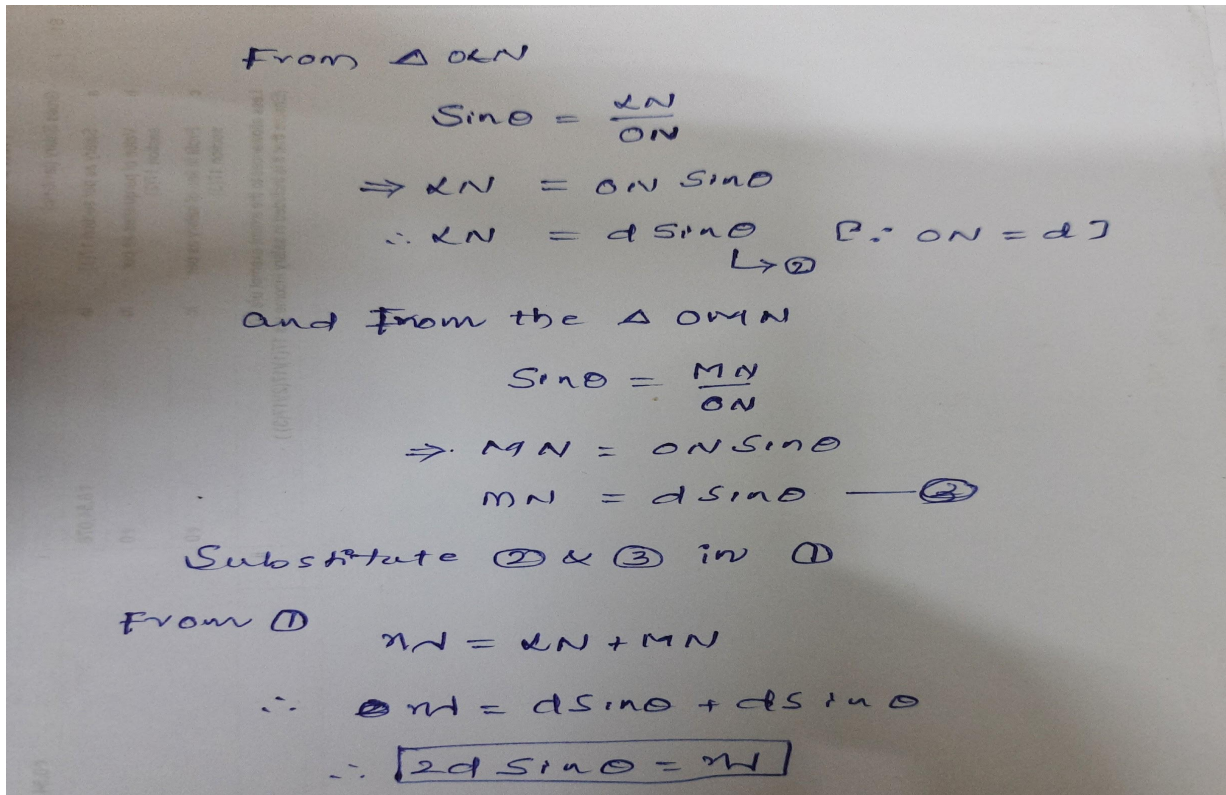 From △ OLN
Sinθ = LN / ON
⇒ LN = ON Sinθ
∴ LN = d Sinθ [∵ ON = d]
↳ ②
and From the △ OMN
Sinθ = MN / ON
⇒. MN = ON Sinθ
MN = d Sinθ — ③
Substitute ② & ③ in ①
From ①
nλ = LN + MN
∴ nλ = dSinθ + dSinθ
∴ 2d Sinθ = nλ